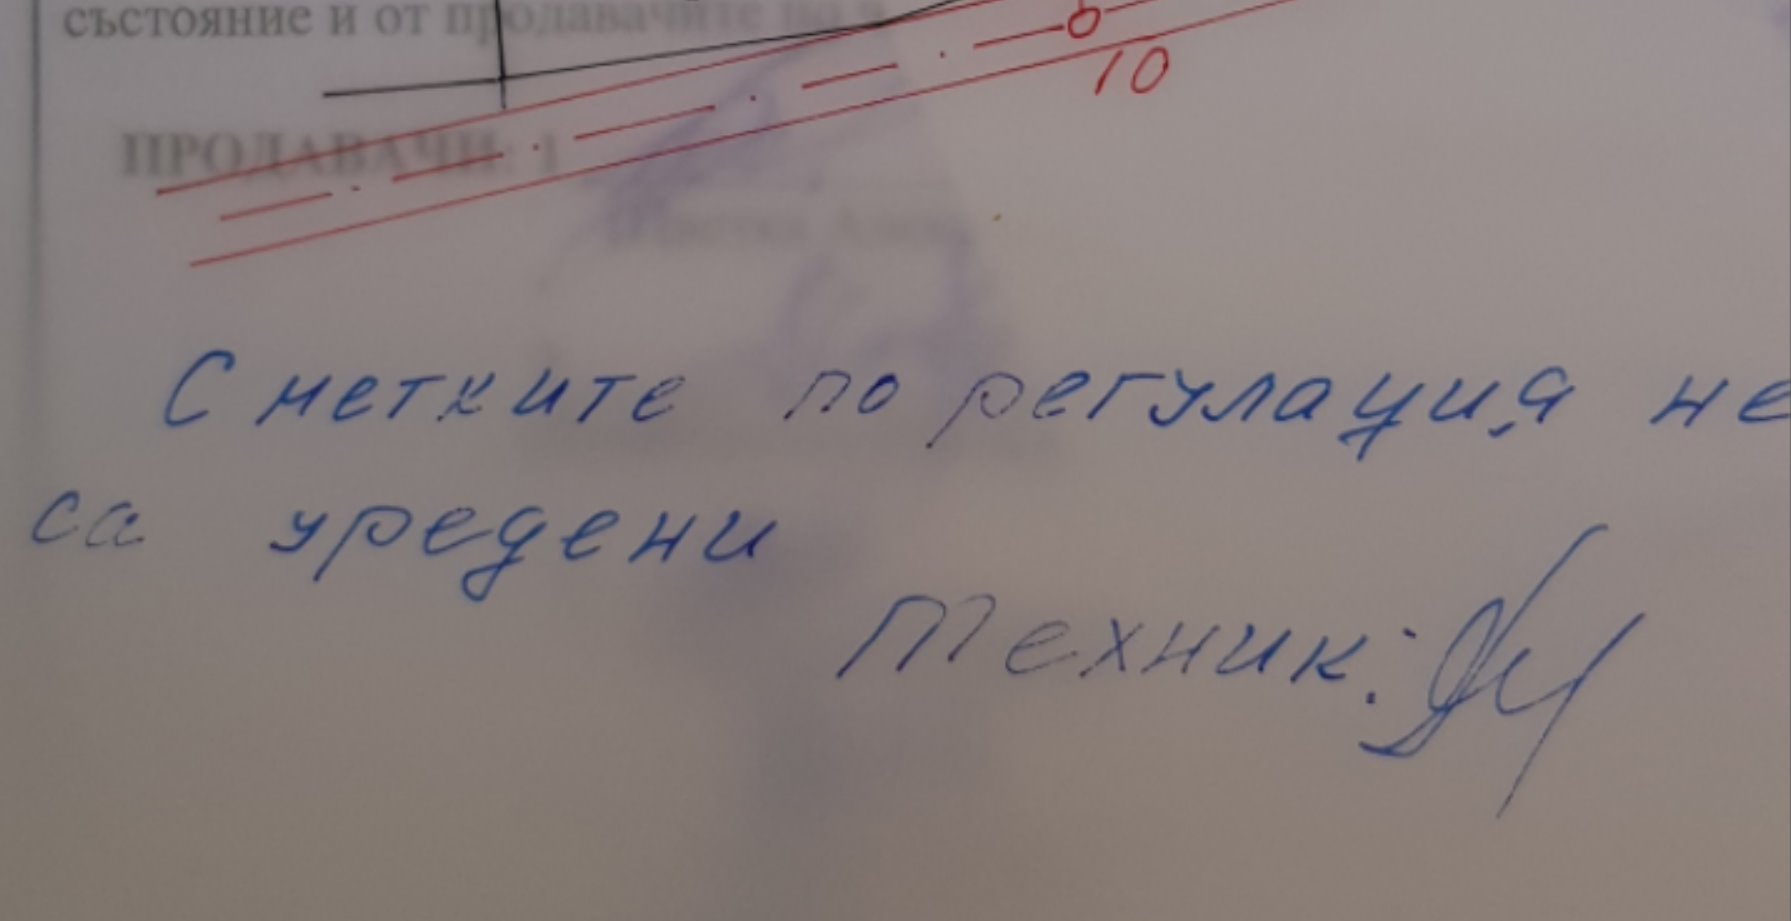 състояние и от продавачите по
6
10
ПРОДАВАЧИ: 1
Сметките по регулация не
са уредени
Техник: